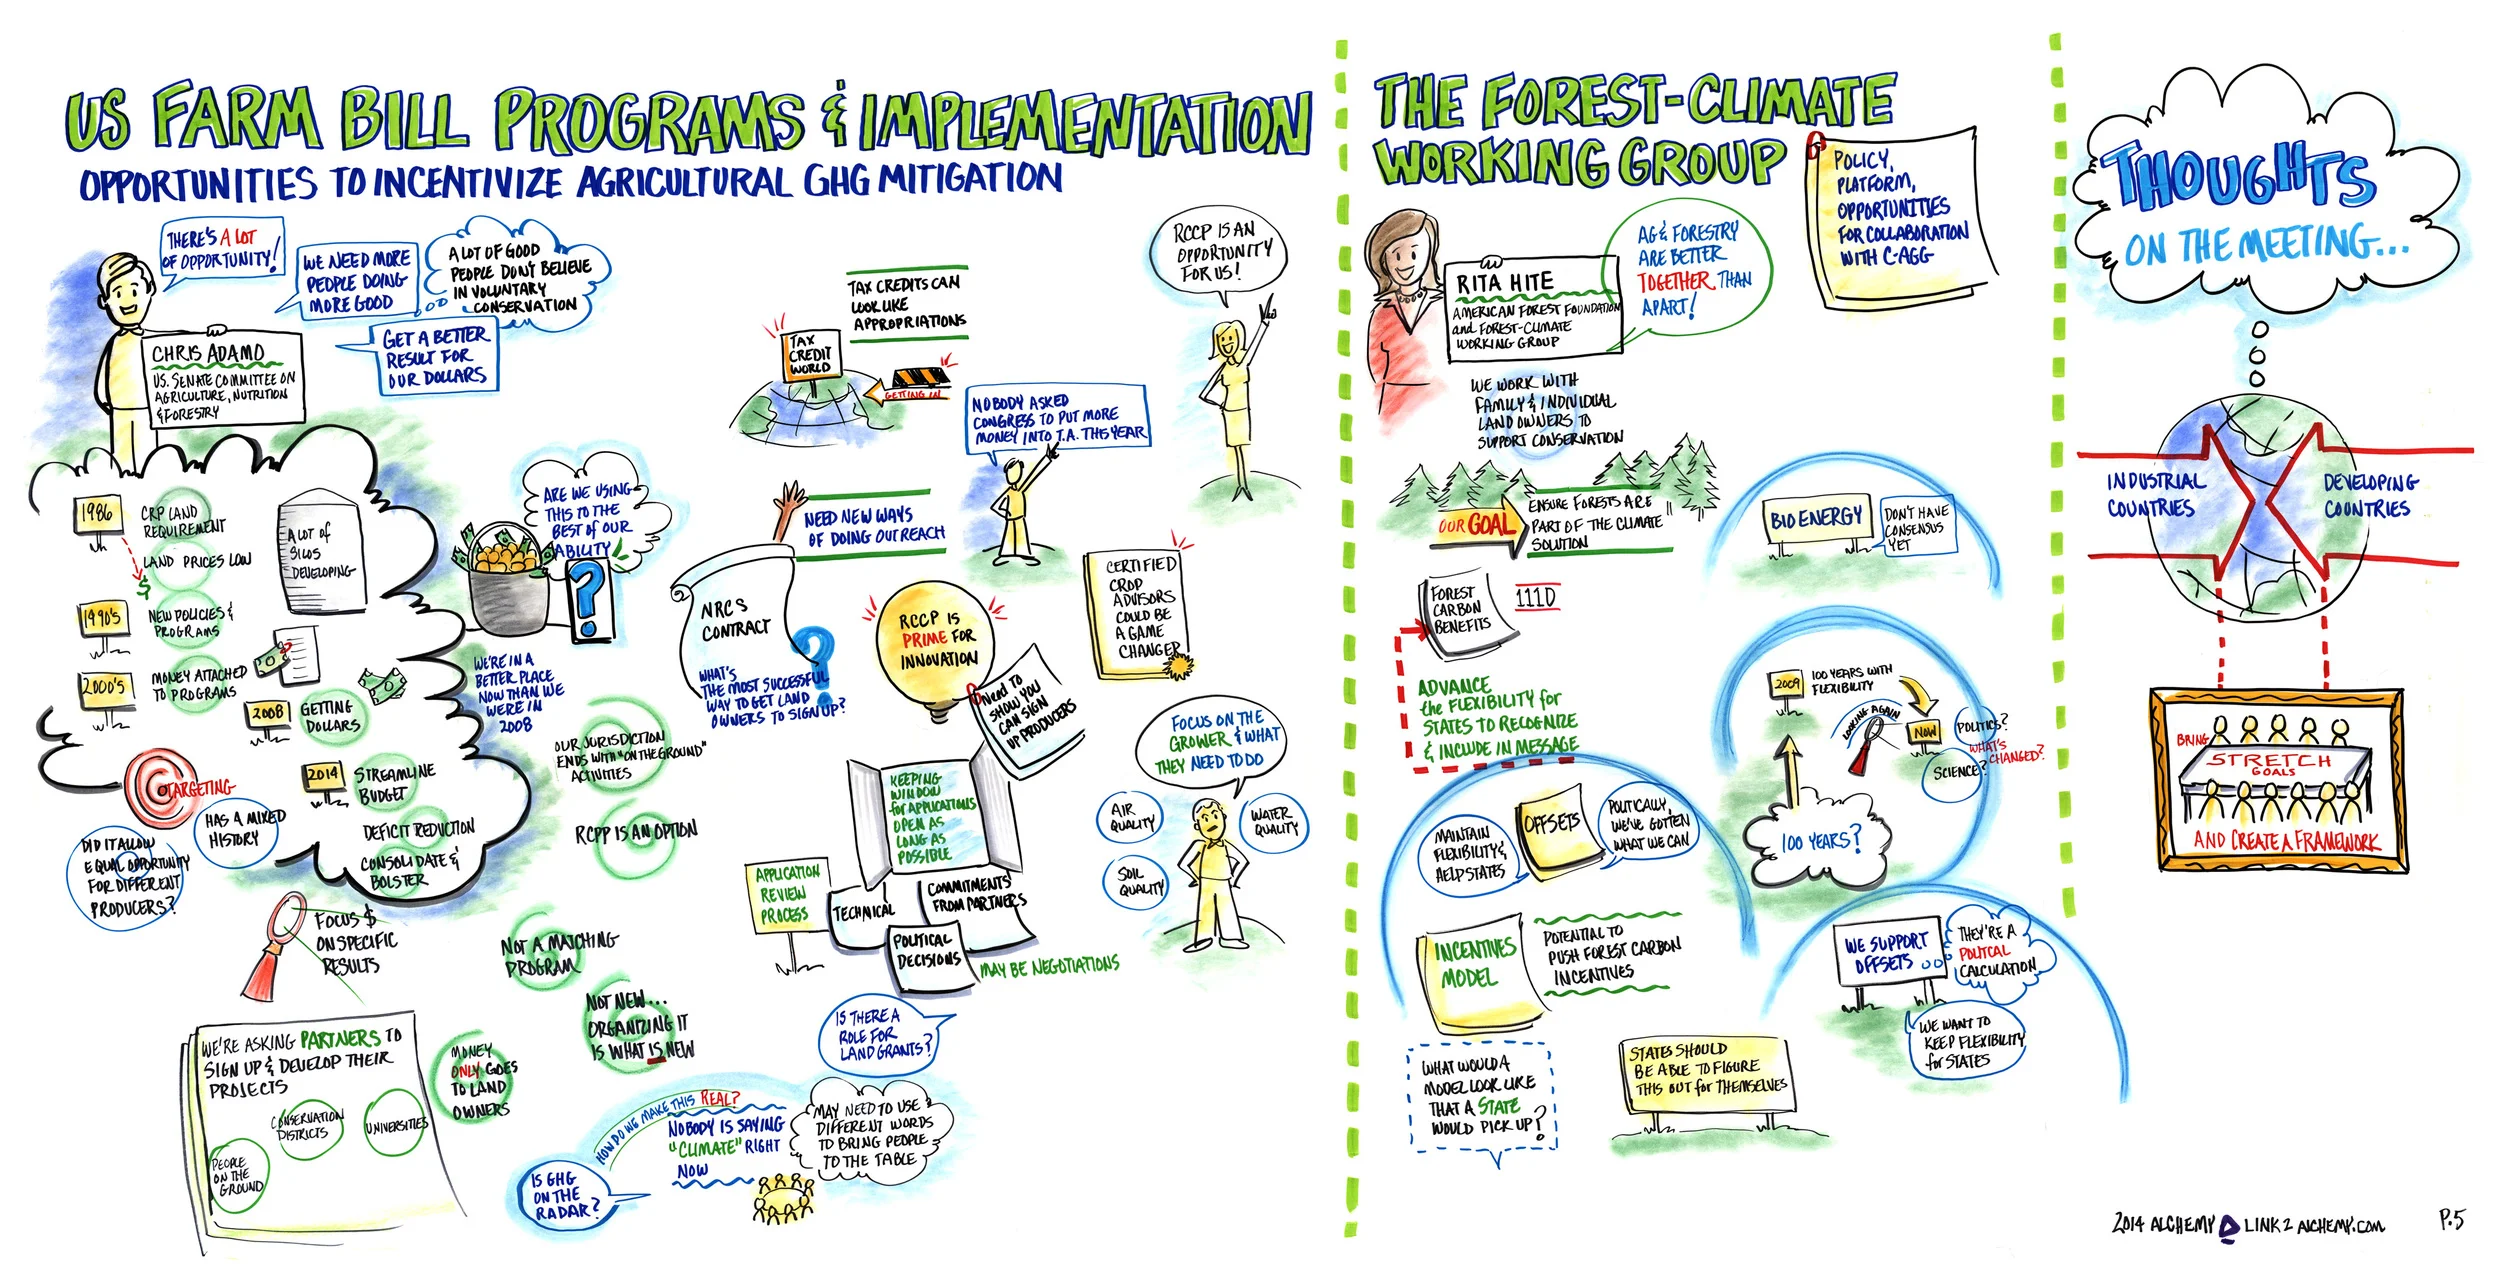 US FARM BILL PROGRAMS & IMPLEMENTATION
OPPORTUNITIES TO INCENTIVIZE AGRICULTURAL GHG MITIGATION
THERE'S A LOT
OF OPPORTUNITY!
WE NEED MORE
PEOPLE DOING
MORE GOOD
A LOT OF GOOD
PEOPLE DON'T BELIEVE
IN VOLUNTARY
CONSERVATION
GET A BETTER
RESULT FOR
OUR DOLLARS
CHRIS ADAMO
U.S. SENATE COMMITTEE ON
AGRICULTURE, NUTRITION
& FORESTRY
1986
CRP LAND
REQUIREMENT
LAND PRICES LOW
$
A LOT OF
SILOS
DEVELOPING
1990'S
NEW POLICIES &
PROGRAMS
2000'S
MONEY ATTACHED
TO PROGRAMS
2008
GETTING
DOLLARS
2014
STREAMLINE
BUDGET
DEFICIT REDUCTION
CONSOLIDATE &
BOLSTER
TARGETING
HAS A MIXED
HISTORY
DID IT ALLOW
EQUAL OPPORTUNITY
FOR DIFFERENT
PRODUCERS?
FOCUS $
ON SPECIFIC
RESULTS
WE'RE ASKING PARTNERS TO
SIGN UP & DEVELOP THEIR
PROJECTS
CONSERVATION
DISTRICTS
UNIVERSITIES
PEOPLE
ON THE
GROUND
MONEY
ONLY GOES
TO LAND
OWNERS
ARE WE USING
THIS TO THE
BEST OF OUR
ABILITY
?
WE'RE IN A
BETTER PLACE
NOW THAN WE
WERE IN
2008
OUR JURISDICTION
ENDS WITH "ON THE GROUND"
ACTIVITIES
RCPP IS AN OPTION
NOT A MATCHING
PROGRAM
NOT NEW...
ORGANIZING IT
IS WHAT IS NEW
TAX CREDITS CAN
LOOK LIKE
APPROPRIATIONS
TAX
CREDIT
WORLD
GETTING IN
NOBODY ASKED
CONGRESS TO PUT MORE
MONEY INTO T.A. THIS YEAR
RCCP IS AN
OPPORTUNITY
FOR US!
NEED NEW WAYS
OF DOING OUTREACH
NRCS
CONTRACT
?
WHAT'S
THE MOST SUCCESSFUL
WAY TO GET LAND
OWNERS TO SIGN UP?
RCCP IS
PRIME FOR
INNOVATION
NEED TO
SHOW YOU
CAN SIGN
UP PRODUCERS
CERTIFIED
CROP
ADVISORS
COULD BE
A GAME
CHANGER
KEEPING
WINDOW
for APPLICATIONS
OPEN AS
LONG AS
POSSIBLE
APPLICATION
REVIEW
PROCESS
TECHNICAL
COMMITMENTS
FROM PARTNERS
POLITICAL
DECISIONS
MAY BE NEGOTIATIONS
FOCUS ON THE
GROWER & WHAT
THEY NEED TO DO
AIR
QUALITY
WATER
QUALITY
SOIL
QUALITY
IS THERE A
ROLE FOR
LAND GRANTS?
HOW DO WE MAKE THIS REAL?
NOBODY IS SAYING
"CLIMATE" RIGHT
NOW
IS GHG
ON THE
RADAR?
MAY NEED TO USE
DIFFERENT WORDS
TO BRING PEOPLE
TO THE TABLE
THE FOREST-CLIMATE
WORKING GROUP
POLICY,
PLATFORM,
OPPORTUNITIES
FOR COLLABORATION
WITH C-AGG
RITA HITE
AMERICAN FOREST FOUNDATION
and FOREST-CLIMATE
WORKING GROUP
AG & FORESTRY
ARE BETTER
TOGETHER THAN
APART!
WE WORK WITH
FAMILY & INDIVIDUAL
LAND OWNERS TO
SUPPORT CONSERVATION
OUR GOAL
ENSURE FORESTS ARE
PART OF THE CLIMATE
SOLUTION
FOREST
CARBON
BENEFITS
111D
ADVANCE
the FLEXIBILITY for
STATES TO RECOGNIZE
& INCLUDE IN MESSAGE
BIO ENERGY
DON'T HAVE
CONSENSUS
YET
2009
100 YEARS WITH
FLEXIBILITY
LOOKING AGAIN
NOW
POLITICS?
WHAT'S
CHANGED?
SCIENCE?
100 YEARS?
MAINTAIN
FLEXIBILITY &
HELP STATES
OFFSETS
POLITICALLY,
WE'VE GOTTEN
WHAT WE CAN
INCENTIVES
MODEL
POTENTIAL TO
PUSH FOREST CARBON
INCENTIVES
WHAT WOULD A
MODEL LOOK LIKE
THAT A STATE
WOULD PICK UP?
WE SUPPORT
OFFSETS
THEY'RE A
POLITCAL
CALCULATION
WE WANT TO
KEEP FLEXIBILITY
for STATES
STATES SHOULD
BE ABLE TO FIGURE
THIS OUT for THEMSELVES
THOUGHTS
ON THE MEETING...
INDUSTRIAL
COUNTRIES
DEVELOPING
COUNTRIES
BRING
STRETCH
GOALS
AND CREATE A FRAMEWORK
2014 ALCHEMY LINK2ALCHEMY.COM
P.5